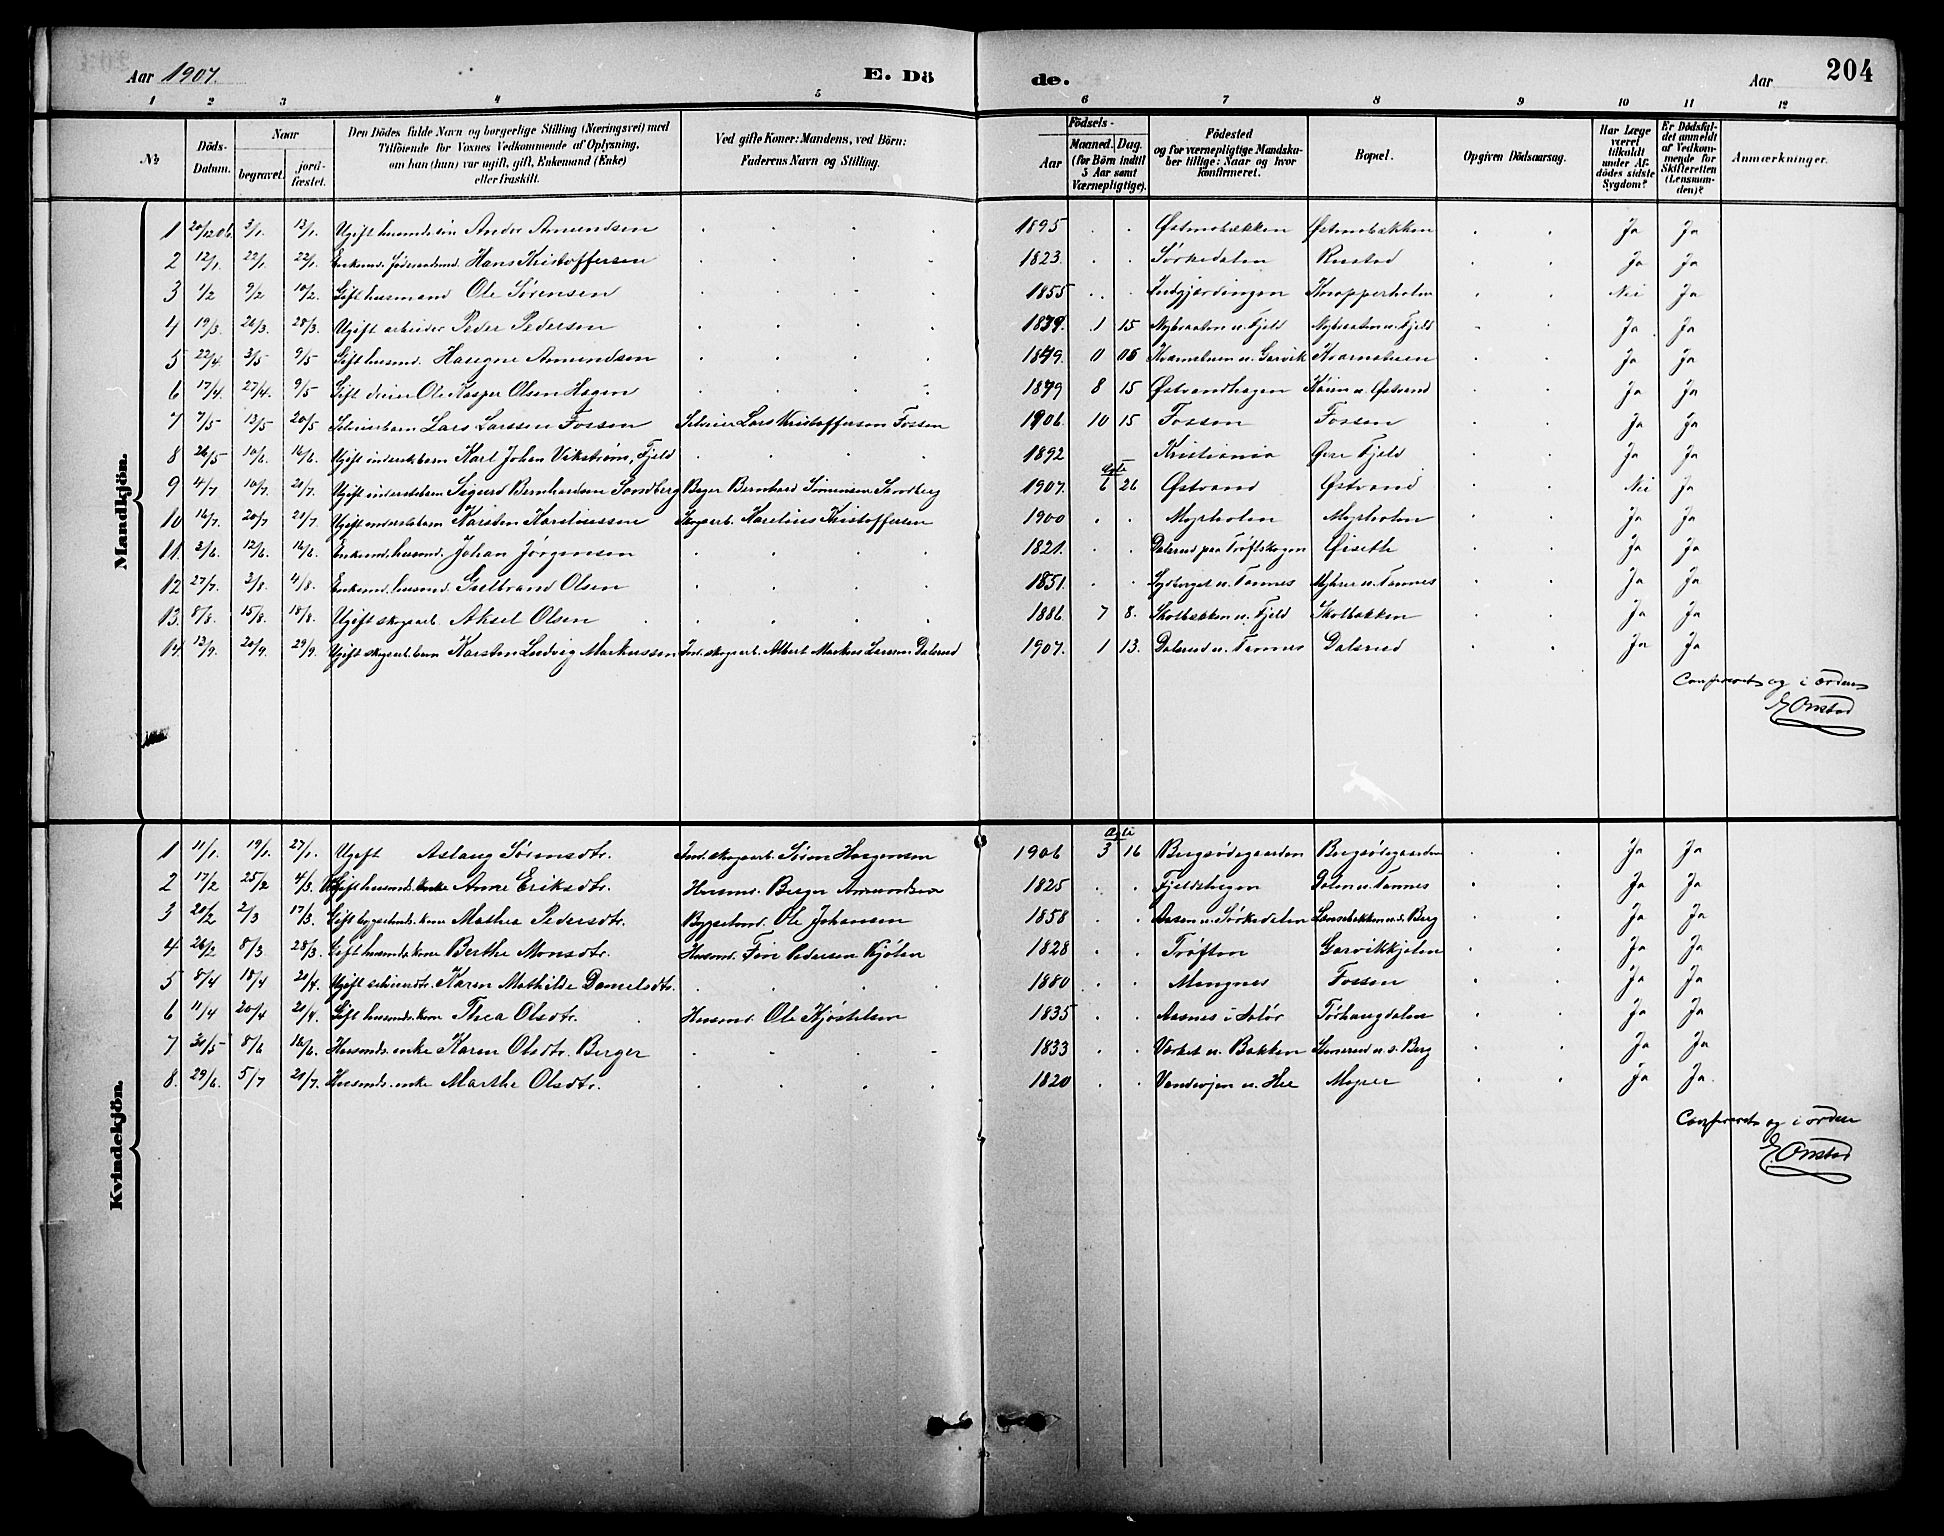 Aar 1907. E. Dö de. Aar 204
1 2 3 4 5 6 7 8 9 10 11 12
№ Döds-Datum. Naar begravet. jordfæstet. Den Dödes fulde Navn og borgerlige Stilling (Næringsvei) med Tilföiende for Voxnes Vedkommende af Oplysning, om han (hun) var ugift, gift, Enkemand (Enke) eller fraskilt. Ved gifte Koner: Mandens, ved Börn: Faderens Navn og Stilling. Födsels- Aar Maaned. Dag. (for Börn indtil 5 Aar samt Værnepligtige). Födested og for værnepligtige Mandskaber tillige: Naar og hvor konfirmeret. Bopæl. Opgiven Dödsaarsag. Har Læge været tilkaldt under Afdödes sidste Sygdom? Er Dödsfaldet anmeldt af Vedkommende for Skifteretten (Lensmanden)? Anmærkninger.
Mandkjön.
1 20/12 06. 3/1. 13/1. Ugift Amundsen 1895 Østmobækken Østmobækken Ja Ja
2 12/1. 22/1. 22/1. Enkemd. Hans Kristoffersen 1823. Sørkedalen Rustad Ja Ja
3 1/2 9/2 10/2. Gift husmand Ole Sørensen 1855 Knapperholm Nei Ja
4 19/3. 26/3. 28/3. Ugift arbeider Peder Pedersen 1879. 1 15 Nybraaten u. Fjeld Nybraaten u. Fjeld Ja Ja
5 22/4. 3/5 9/5 Gift husmd. Amundsen 1849. 0 06 Kvarnstuen u. Garvik Kvarnstuen Ja Ja
6 17/4. 27/4. 9/5 Gift Ole Kasper Olsen Hagen 1879 8 15 Østvandhagen Ja Ja
7 7/5 13/5 20/5 Selveierbarn Lars Larssen Fossen Selveier Lars Kristoffersen Fossen 1906. 10 15 Fossen Fossen Ja Ja
8 26/5 10/6. 16/6. Ugift inderstbarn Karl Johan Vikstrøm, Fjeld 1892 Kristiania Øvre Fjeld Ja Ja
9 4/7 10/7. 21/7. Ugift inderstebarn Sigurd Bernhardsen Sandberg Bager Bernhard Simensen Sandberg 1907. 6 26 Østvand Østvand Nei Ja
10 16/7. 20/7 21/7. Ugift inderstebarn Karsten Kareliussen Skogarb. Karelius Kristoffersen 1900 Myrholen Myrholen Ja Ja
11. 3/6. 12/6. 16/6. Enkemd. husmd. Johan Jørgensen 1821. Dalsrud paa Trøftskogen Øiseth Ja Ja
12 27/7. 3/8. 4/8. Enkemd. husmd. Gulbrand Olsen 1851. Lydberget u. Tannes Myhrer u. Tannes Ja Ja
13. 8/8. 15/8. 18/8. Ugift skogarb. Aksel Olsen 1886 7 8. Skolbækken u. Fjeld Skolbækken Ja Ja
14. 13/9. 20/9. 29/9. Ugift skogarb.barn Karsten Ludvig Markussen Ind. skogarb. Albert Markus Larsen Dalsrud 1907. 1 13. Dalsrud u. Tannes Dalsrud Ja Ja
Confereret og i orden
E. Onstad
Kvindekjön.
1 11/1. 19/1. 27/1. Ugift Aslaug Sørensdtr. Ind. skogarb. Søren 1906 3 16 Bergsødegaarden Bergsødegaarden Ja Ja
2 17/2 25/2 4/3. Gift husmds. enke Anne Eriksdtr. Husmd. Berger Amundsen 1825 Fjeldshagen Dalen u. Tannes Ja Ja
3 20/2 2/3 17/3. Gift bygselmds. kone Mathea Pedersdtr. Bygselmd. Ole Johansen 1858 Aasen u. Sørkedalen Ja Ja
4 26/2 8/3 28/3. Gift husmds. kone Berthe Monsdtr. Husmd. Pedersen Kjølen 1828 Trøften Garvikkjølen Ja Ja
5 8/4 18/4 21/4. Ugift selveierdtr. Karen Mathilde Danielsdtr. 1880 Mangnes Fossen Ja Ja
6 11/4 20/4 21/4. Gift husmds. kone Thea Olsdtr. Husmd. Ole Kjøstelsen 1835 Aasnes i Solør Torhaugdalen Ja Ja
7 31/5 8/6 16/6. Husmds. enke Karen Olsdtr. Berger 1833 Værket u. Bakken Ja Ja
8. 29/6. 5/7 21/7. Husmds. enke Marthe Olsdtr. 1820 Myrer Ja Ja.
Confereret og i orden
E. Onstad